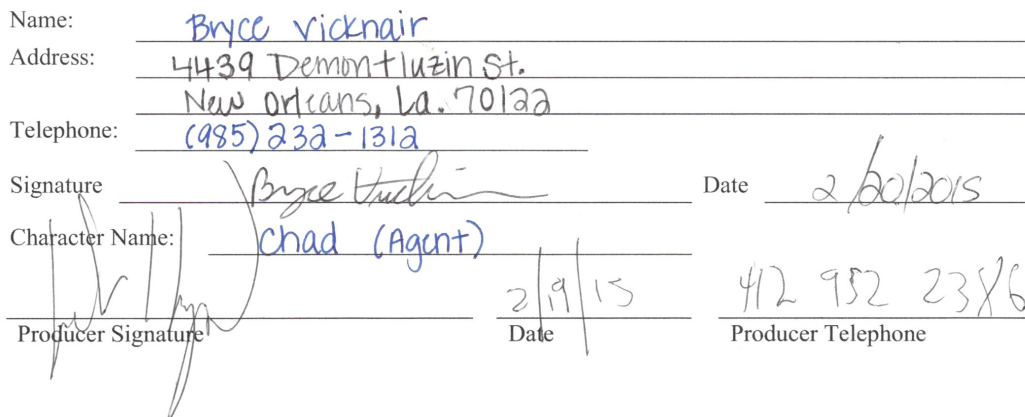 Name: Bryce Vicknair
Address: 4439 Demontluzin St.
New Orleans, La. 70122
Telephone: (985) 232-1312
Signature Bryce Date 2/20/2015
Character Name: Chad (Agent)
2/19/15 412 952 2386
Producer Signature Date Producer Telephone